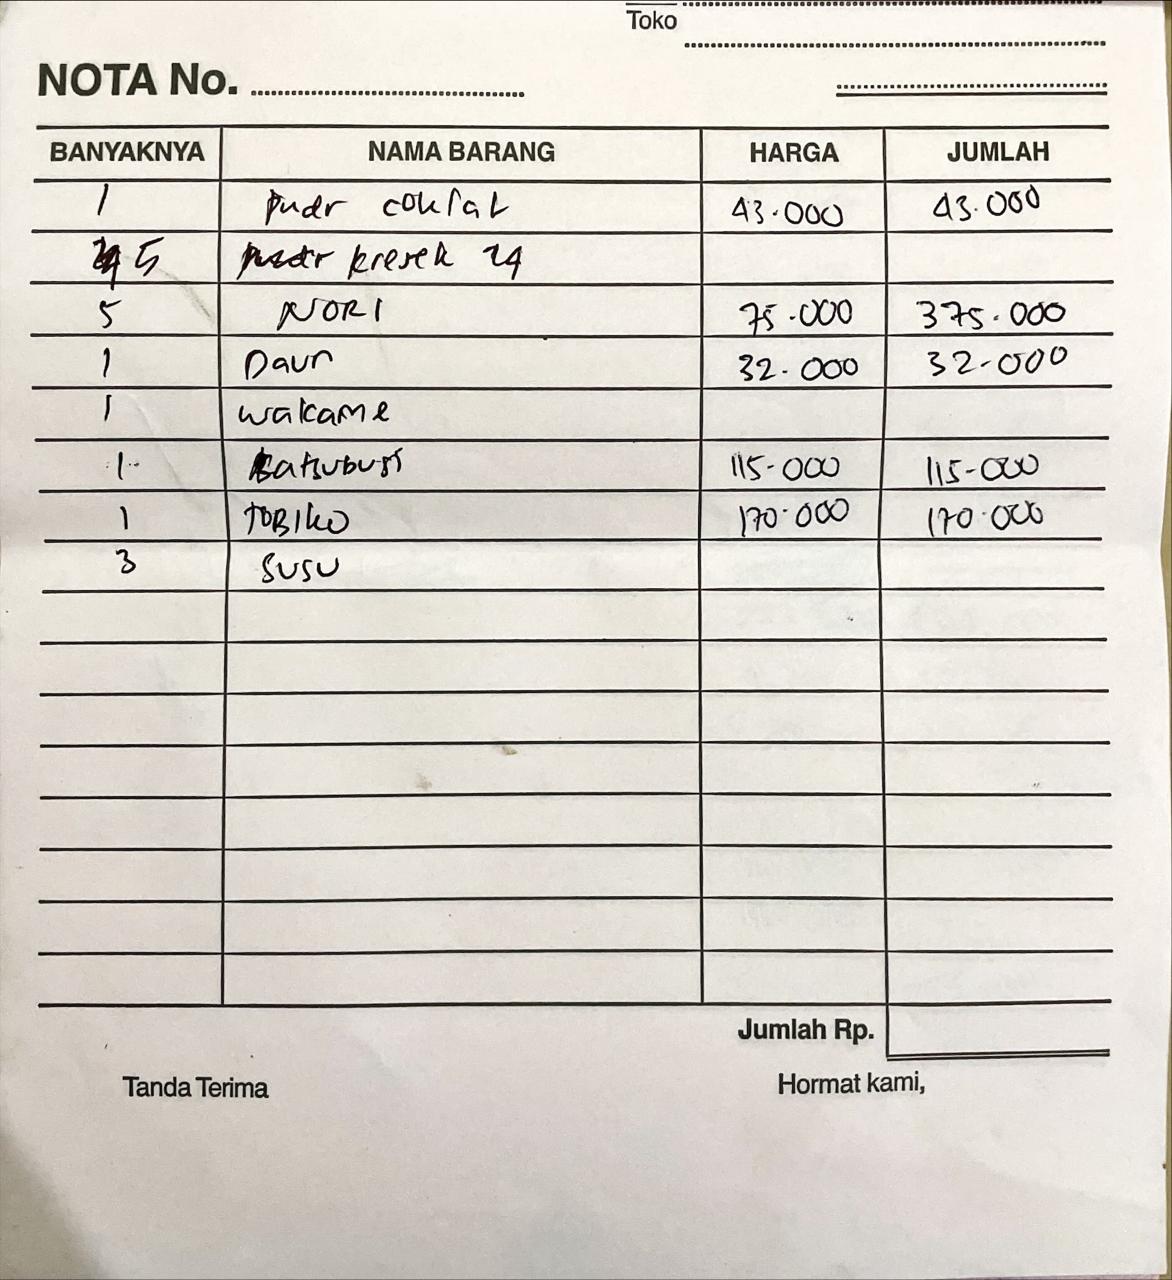 Toko
NOTA No.
BANYAKNYA NAMA BARANG HARGA JUMLAH
1 pudr coklat 43.000 43.000
5 kresek 24
5 NORI 75.000 375.000
1 Daun 32.000 32.000
1 wakame
1 katsubusi 115.000 115.000
1 TOBIKO 170.000 170.000
3 SUSU
Jumlah Rp.
Tanda Terima Hormat kami,